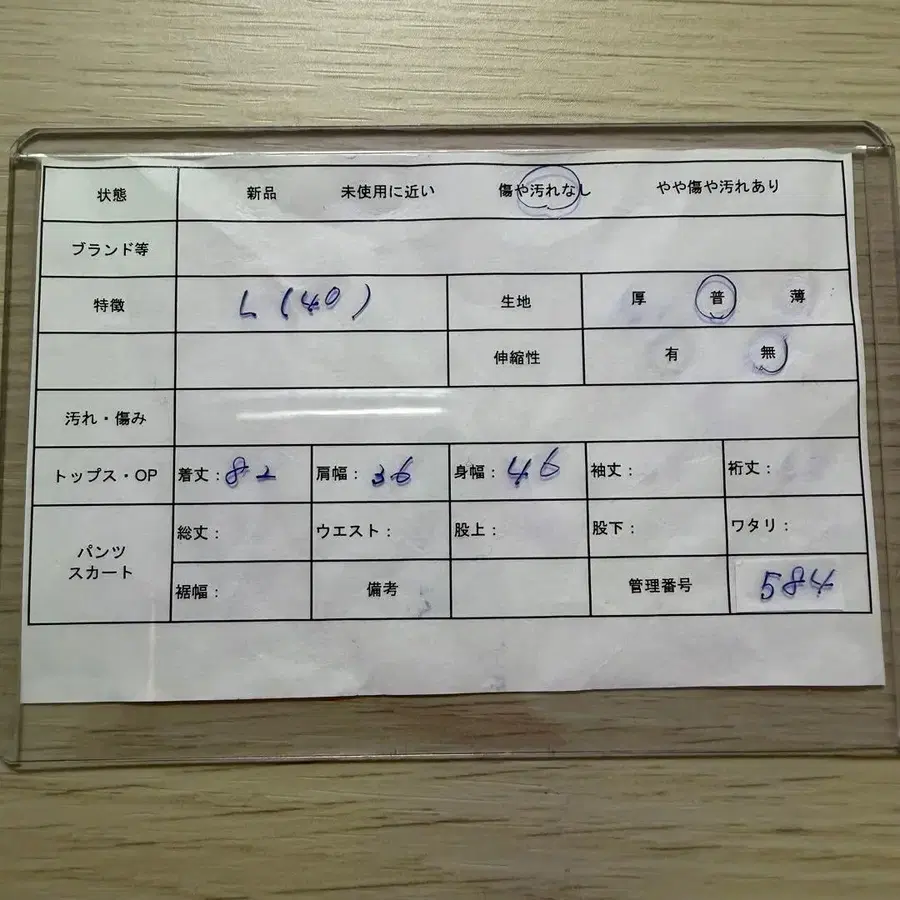 状態 新品 未使用に近い 傷や汚れなし やや傷や汚れあり
ブランド等
特徴 L (40) 生地 厚 普 薄
伸縮性 有 無
汚れ・傷み
トップス・OP 着丈:82 肩幅:36 身幅:46 袖丈: 裄丈:
パンツ
スカート
総丈: ウエスト: 股上: 股下: ワタリ:
裾幅: 備考 管理番号 584